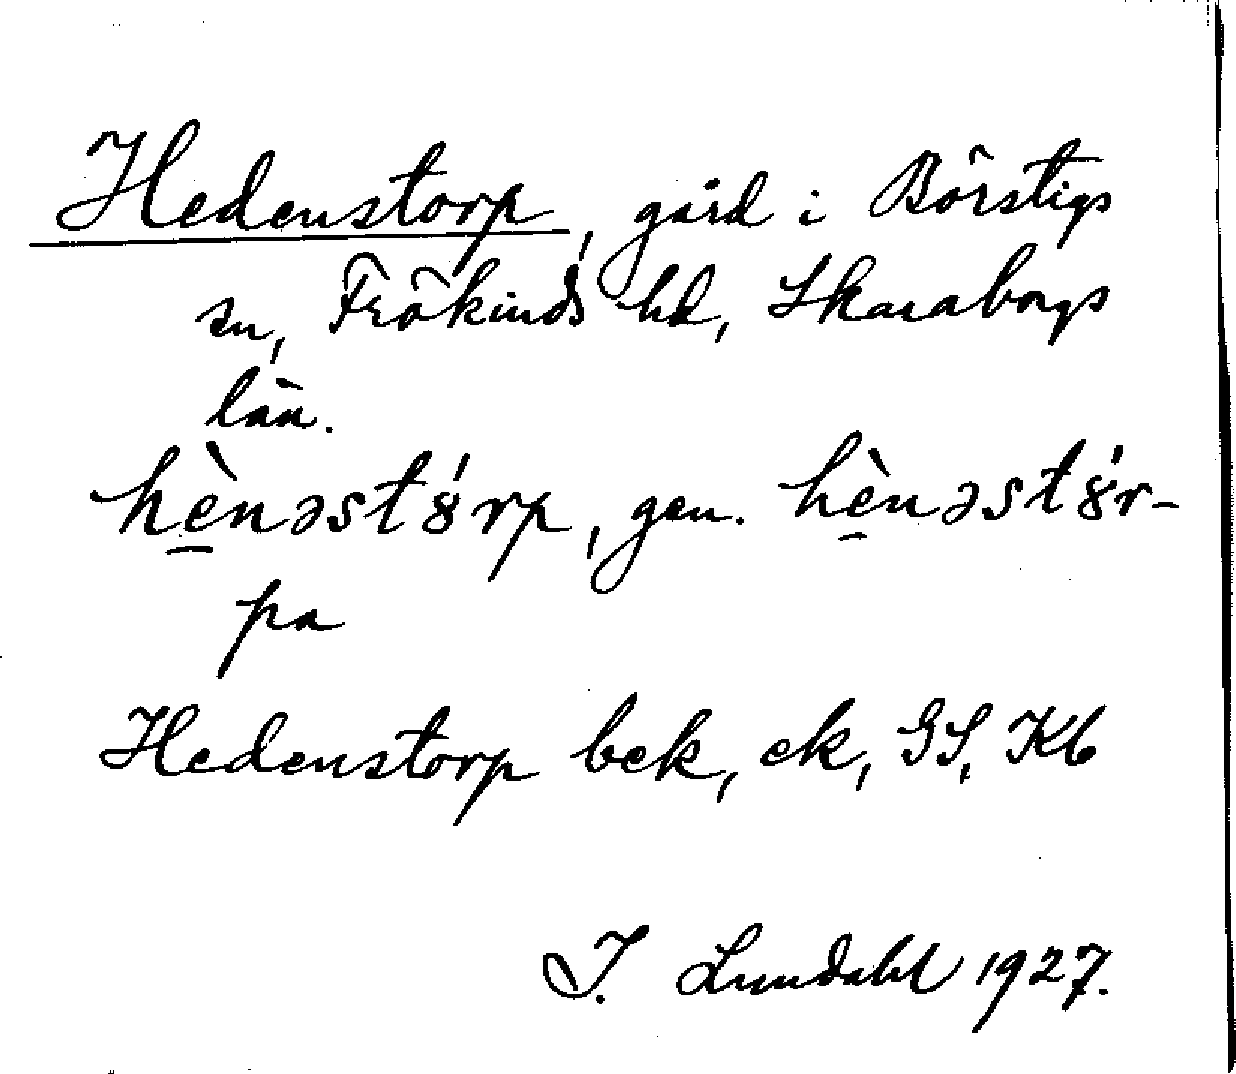 Hedenstorp, gård i Börstigs
sn, Frökinds hd, Skaraborgs
län.
hènəst8́rp, gen. hènəst8́r-
pa
Hedenstorp bek, ek, GS, Kb
I. Lundahl 1927.